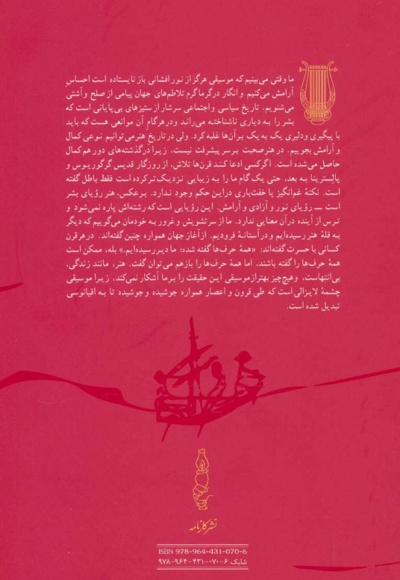 ما وقتی می‌بینیم که موسیقی هرگز از نور افشانی باز نایستاده است احساس
آرامش می‌کنیم و انگار در گرماگرم تلاطم‌های جهان پیامی از صلح و آشتی
می‌شنویم. تاریخ سیاسی و اجتماعی سرشار از ستیزهای بی‌پایانی است که
بشر را به دیاری ناشناخته می‌راند و در هر گام آن موانعی هست که باید
با پیگیری و دلیری یک به یک بر آن‌ها غلبه کرد. ولی در تاریخ هنر می‌توانیم نوعی کمال
و آرامش بجوییم. در هنر صحبت بر سر پیشرفت نیست، زیرا در گذشته‌های دور هم کمال
حاصل می‌شده است. اگر کسی ادعا کند قرن‌ها تلاش، از روزگار قدیس گرگوریوس و
پالسترینا به بعد، حتی یک گام ما را به زیبایی نزدیک‌تر کرده است فقط باطل گفته
است. نکتهٔ غم‌انگیز یا خفت‌باری در این حکم وجود ندارد. برعکس، هنر رؤیای بشر
است — رؤیای نور و آزادی و آرامش. این رؤیایی است که رشته‌اش پاره نمی‌شود و
ترس از آینده در آن معنایی ندارد. ما از سر تشویش و غرور به خودمان می‌گوییم که دیگر
به قلهٔ هنر رسیده‌ایم و در آستانهٔ فرودیم. از آغاز جهان همواره چنین گفته‌اند. در هر قرن
کسانی با حسرت گفته‌اند: «همهٔ حرف‌ها گفته شده؛ ما دیر رسیده‌ایم.» بله، ممکن است
همهٔ حرف‌ها را گفته باشند. اما همهٔ حرف‌ها را باز هم می‌توان گفت. هنر، مانند زندگی،
بی‌انتهاست، و هیچ چیز بهتر از موسیقی این حقیقت را بر ما آشکار نمی‌کند، زیرا موسیقی
چشمهٔ لایزالی است که طی قرون و اعصار همواره جوشیده و جوشیده تا به اقیانوسی
تبدیل شده است.
نشر کارنامه
ISBN 978-964-431-070-6
شابک ۶-۰۷۰-۴۳۱-۹۶۴-۹۷۸